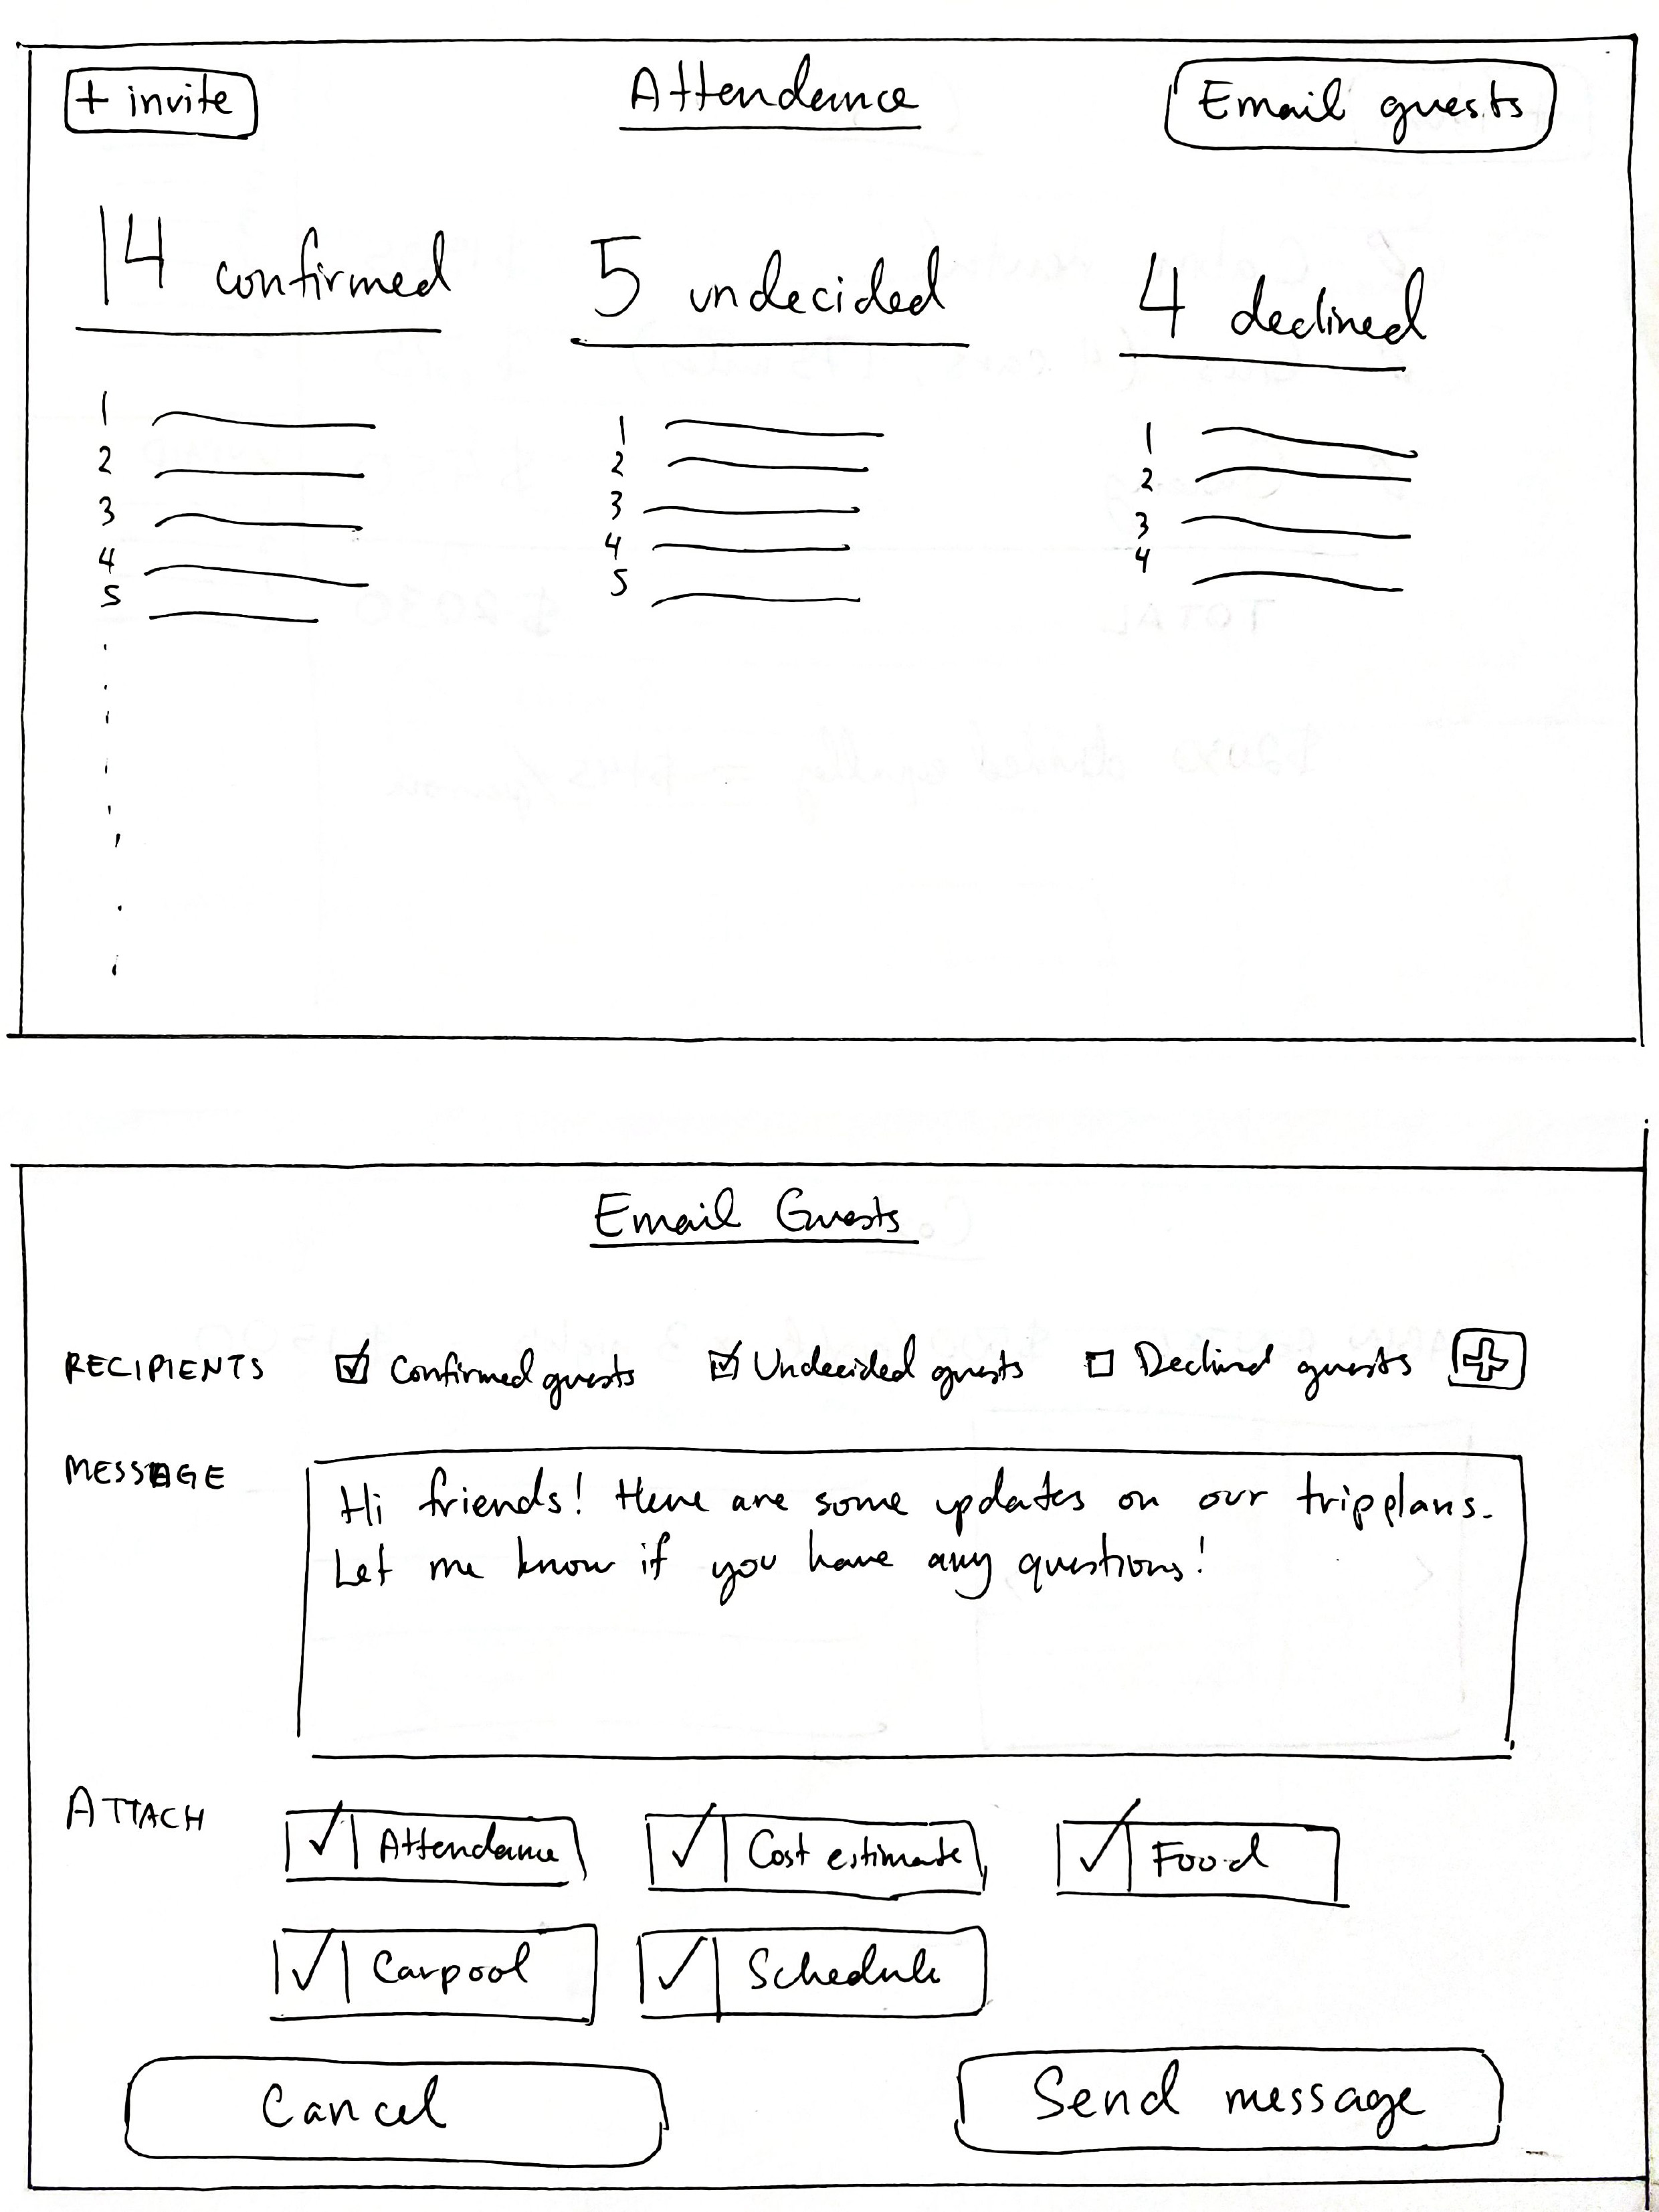 + invite Attendance Email guests
14 confirmed 5 undecided 4 declined
1 1 1
2 2 2
3 3 3
4 4 4
5 5
Email Guests
RECIPIENTS Confirmed guests Undecided guests Declined guests +
MESSAGE Hi friends! Here are some updates on our trip plans.
Let me know if you have any questions!
ATTACH Attendance Cost estimate Food
Carpool Schedule
Cancel Send message